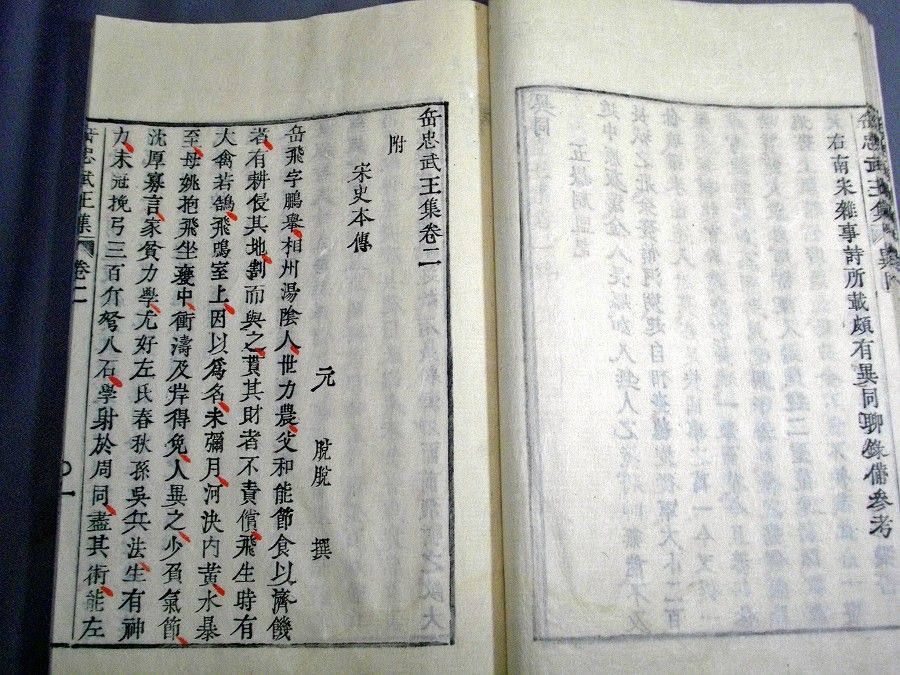 岳忠武王集 異同
右南宋雜事詩所載頗有異同聊錄備參考
岳忠武王集卷二
附
宋史本傳
元 脫脫 撰
岳飛字鵬舉相州湯陰人世力農父和能節食以濟饑
者有耕侵其地割而與之貰其財者不責償飛生時有
大禽若鵠飛鳴室上因以爲名未彌月河決內黃水暴
至母姚抱飛坐甕中衝濤及岸得免人異之少負氣節
沈厚寡言家貧力學尤好左氏春秋孫吳兵法生有神
力未冠挽弓三百斤弩八石學射於周同盡其術能左
岳忠武王集 卷二 一